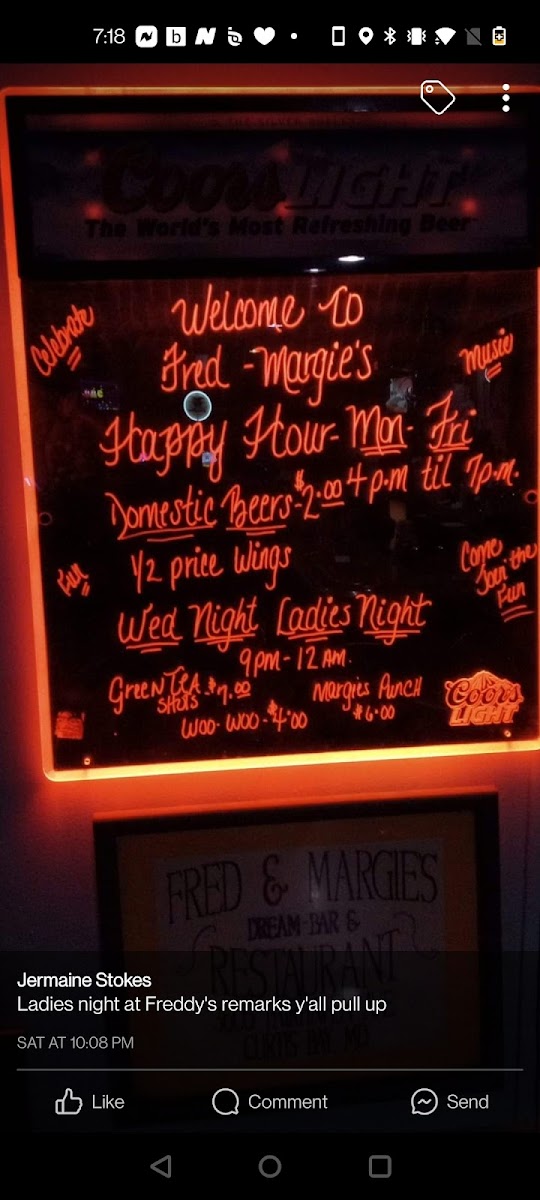 7:18
Coors LIGHT
The World's Most Refreshing Beer
Welcome To
Celebrate
Fred - Margie's
Music
Happy Hour - Mon - Fri
Domestic Beers - $2.00 4 p.m til 7p.m.
1/2 price Wings
Come
Join the
Fun
Wed Night Ladies Night
9pm - 12 AM.
Green TEA $7.00
SHOTS
Margies Punch
$6.00
WOO-WOO - $4.00
Coors
LIGHT
FRED & MARGIES
DREAM-BAR &
RESTAURANT
CURTIS BAY, MD
Jermaine Stokes
Ladies night at Freddy's remarks y'all pull up
SAT AT 10:08 PM
Like
Comment
Send